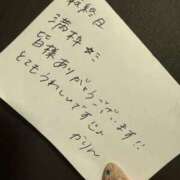 最終日
満枠☆ミ
皆様ありがとうございます!!
とてもうれしいですじょ
かりん